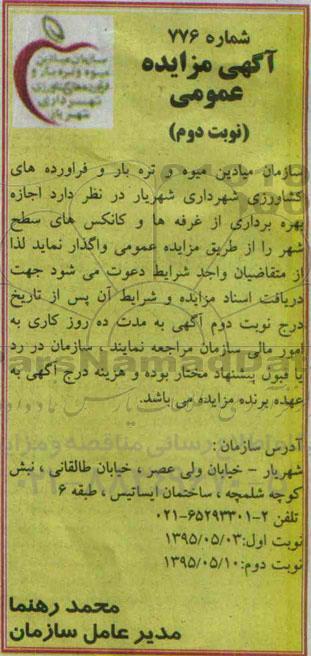 سازمان میادین
میوه و تره بار و
فرآورده های کشاورزی
شهرداری
شهریار
شماره ۷۷۶
آگهی مزایده
عمومی
(نوبت دوم)
سازمان میادین میوه و تره بار و فراورده های
کشاورزی شهرداری شهریار در نظر دارد اجازه
بهره برداری از غرفه ها و کانکس های سطح
شهر را از طریق مزایده عمومی واگذار نماید لذا
از متقاضیان واجد شرایط دعوت می شود جهت
دریافت اسناد مزایده و شرایط آن پس از تاریخ
درج نوبت دوم آگهی به مدت ده روز کاری به
امور مالی سازمان مراجعه نمایند . سازمان در رد
یا قبول پیشنهاد مختار بوده و هزینه درج آگهی به
عهده برنده مزایده می باشد.
آدرس سازمان :
شهریار - خیابان ولی عصر ، خیابان طالقانی ، نبش
کوچه شلمچه ، ساختمان ایساتیس ، طبقه ۶
تلفن ۲-۶۵۲۹۳۳۰۱-۰۲۱
نوبت اول:۱۳۹۵/۰۵/۰۳
نوبت دوم:۱۳۹۵/۰۵/۱۰
محمد رهنما
مدیر عامل سازمان